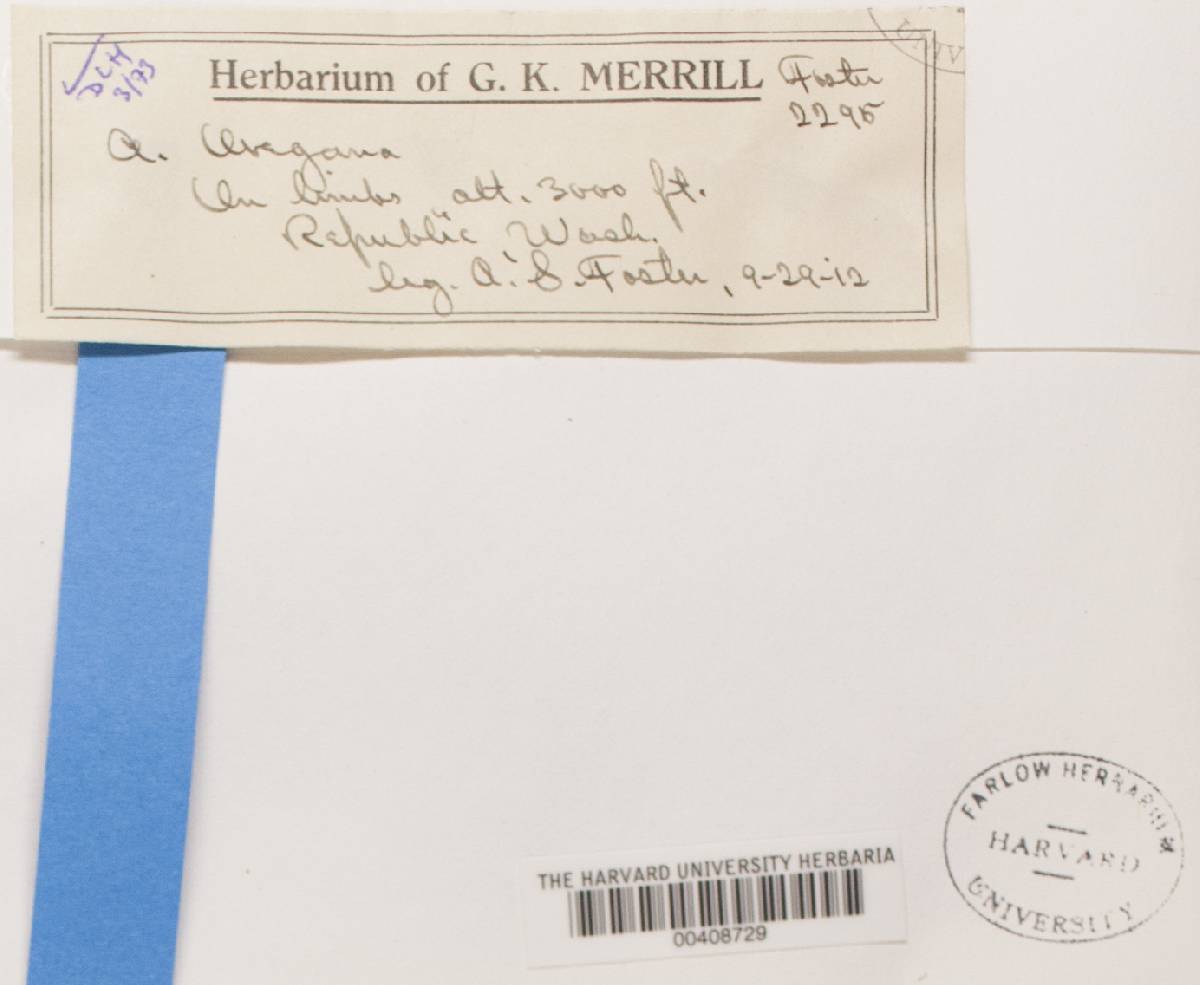 DLH
3/73
UNIV
Herbarium of G. K. MERRILL
Foster
2295
A. Oregana
On limbs alt. 3000 ft.
Republic, Wash.
leg. A. S. Foster, 9-29-12
THE HARVARD UNIVERSITY HERBARIA
00408729
FARLOW HERBARIUM
HARVARD
UNIVERSITY